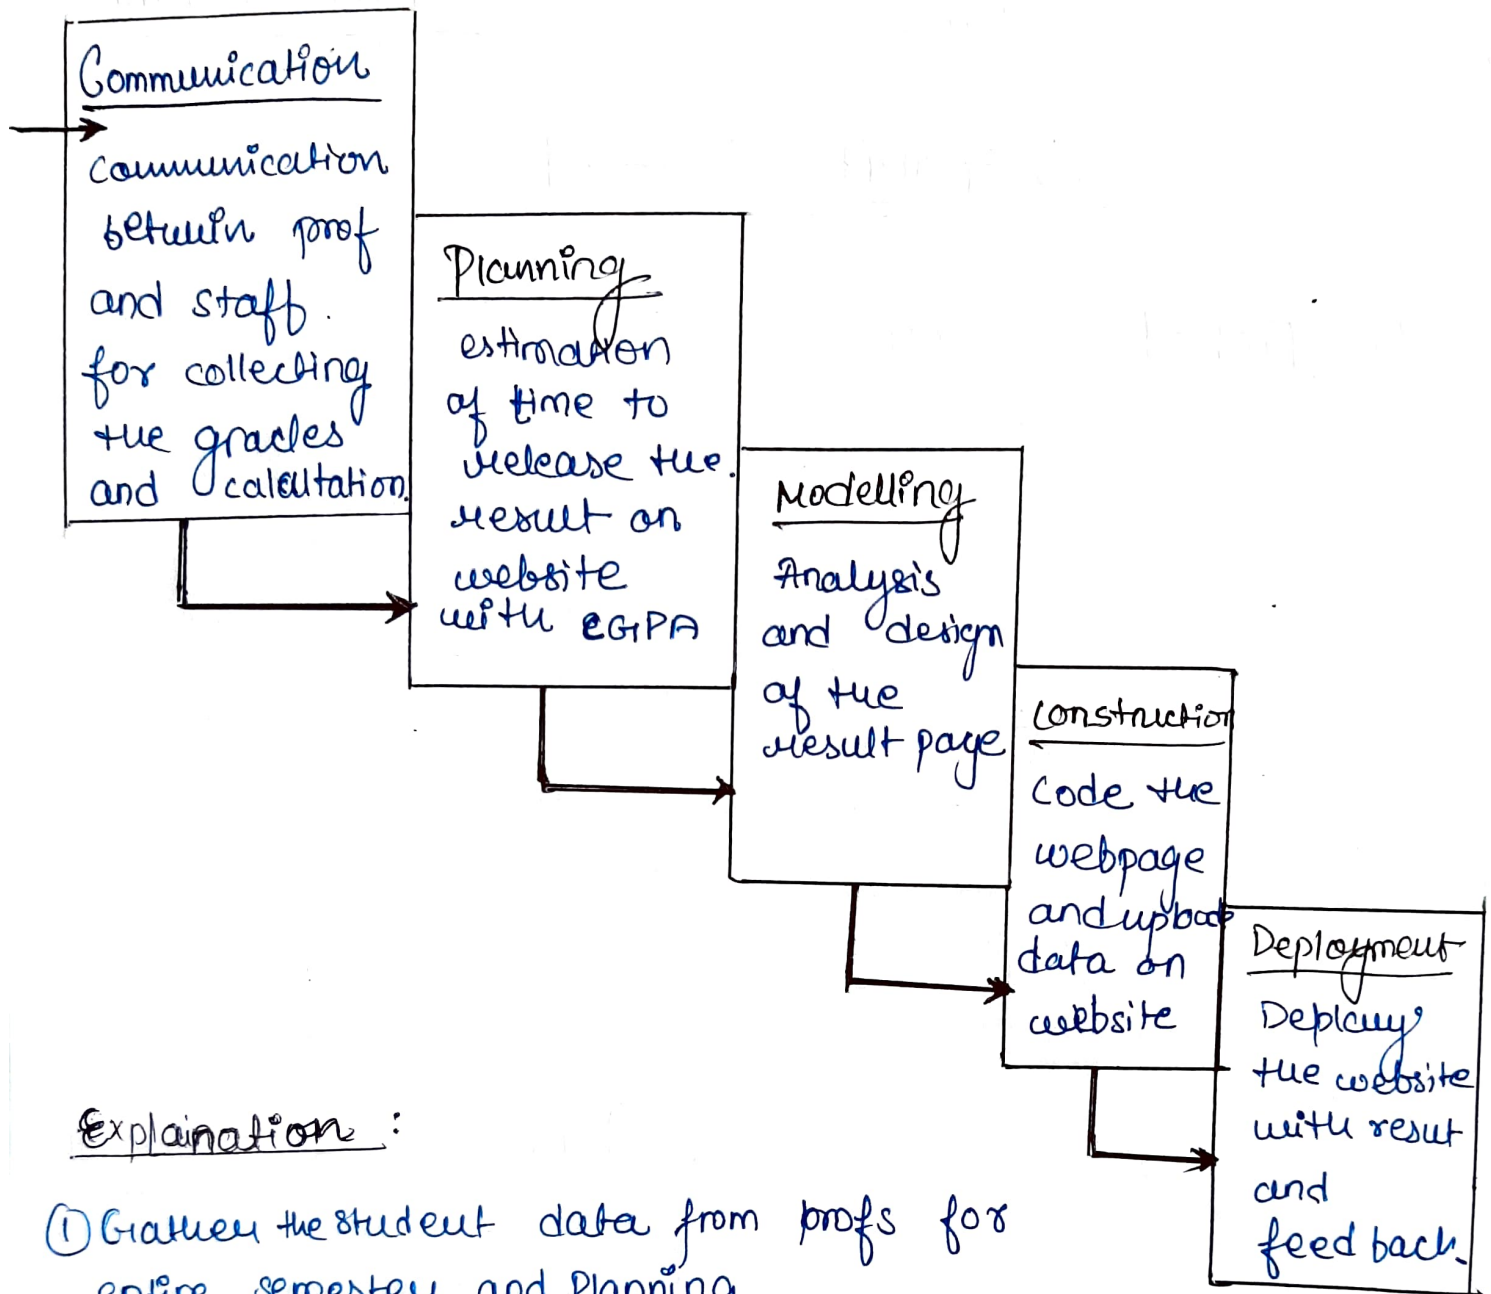 Communication
communication
between prof
and staff.
for collecting
the grades
and calcultation.
Planning
estimation
of time to
release the.
result on
website
with CGPA
Modelling
Analysis
and design
of the
result page
Construction
Code the
webpage
and upload
data on
website
Deployment
Deploy
the website
with resut
and
feed back.
Explaination :
① Gather the student data from profs for
entire semester and Planning